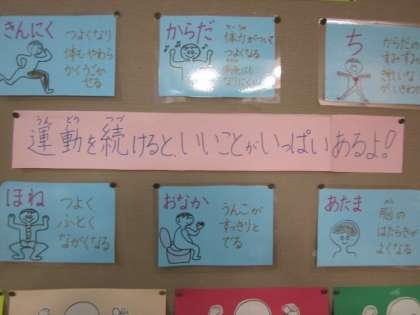 きんにく
つよくなり
体もやわら
かくうごか
せる
からだ
体力がついて
つよくなる
ち
からだの
すみずみ
きれい
うん どう つづ
運動を続けると、いいことがいっぱいあるよ!
ほね
つよく
ふとく
ながくなる
おなか
うんこが
すっきりと
でる
あたま
脳の
はたらきが
よくなる